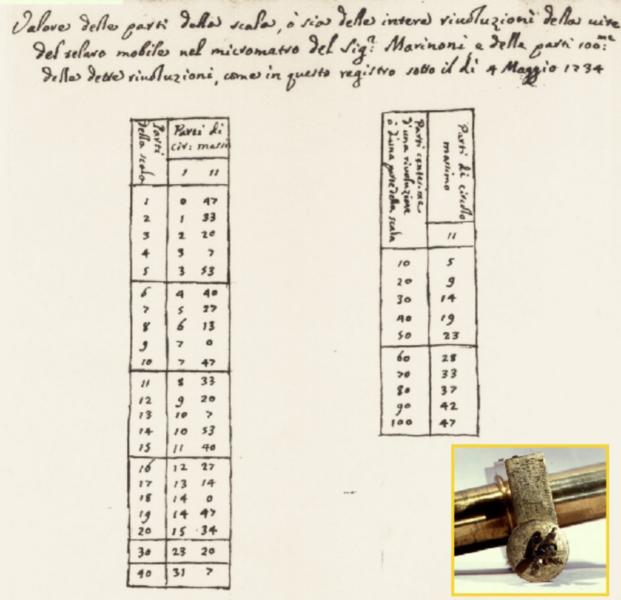 Valore delle parti della scala, ò sia delle intere riuoluzioni della uite
del telaro mobile nel micrometro del Sig.r Marinoni e delle parti 100.me
delle dette riuoluzioni, come in questo registro sotto il di 4 Maggio 1734
Parti della scala
Parti di
cir: mass:
' "
1 0 47
2 1 33
3 2 20
4 3 7
5 3 53
6 4 40
7 5 27
8 6 13
9 7 0
10 7 47
11 8 33
12 9 20
13 10 7
14 10 53
15 11 40
16 12 27
17 13 14
18 14 0
19 14 47
20 15 34
30 23 20
40 31 7
Parti centesime
d'una riuoluzione
ò d'una parte della scala
Parti di circolo
massimo
"
10 5
20 9
30 14
40 19
50 23
60 28
70 33
80 37
90 42
100 47